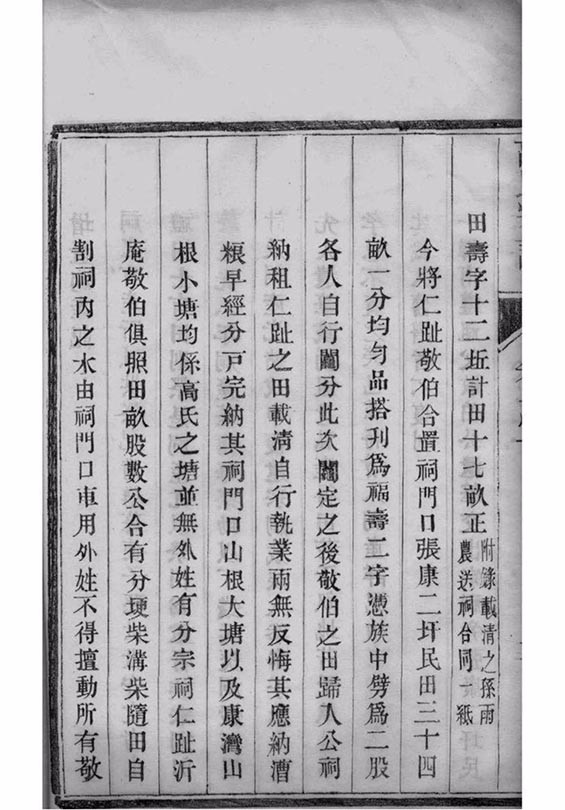 田壽字十二坵計田十七畝正附錄載清之孫雨
農送祠合同一紙
今將仁趾敬伯合置祠門口張康二圩民田三十四
畝一分均勻品搭刊爲福壽二字憑族中劈爲二股
各人自行鬮分此次鬮定之後敬伯之田歸入公祠
納租仁趾之田載清自行執業兩無反悔其應納漕
粮早經分戸完納其祠門口山根大塘以及康灣山
根小塘均係高氏之塘並無外姓有分宗祠仁趾沂
庵敬伯俱照田畝股數公合有分埂柴溝柴隨田自
割祠內之水由祠門口車用外姓不得擅動所有敬